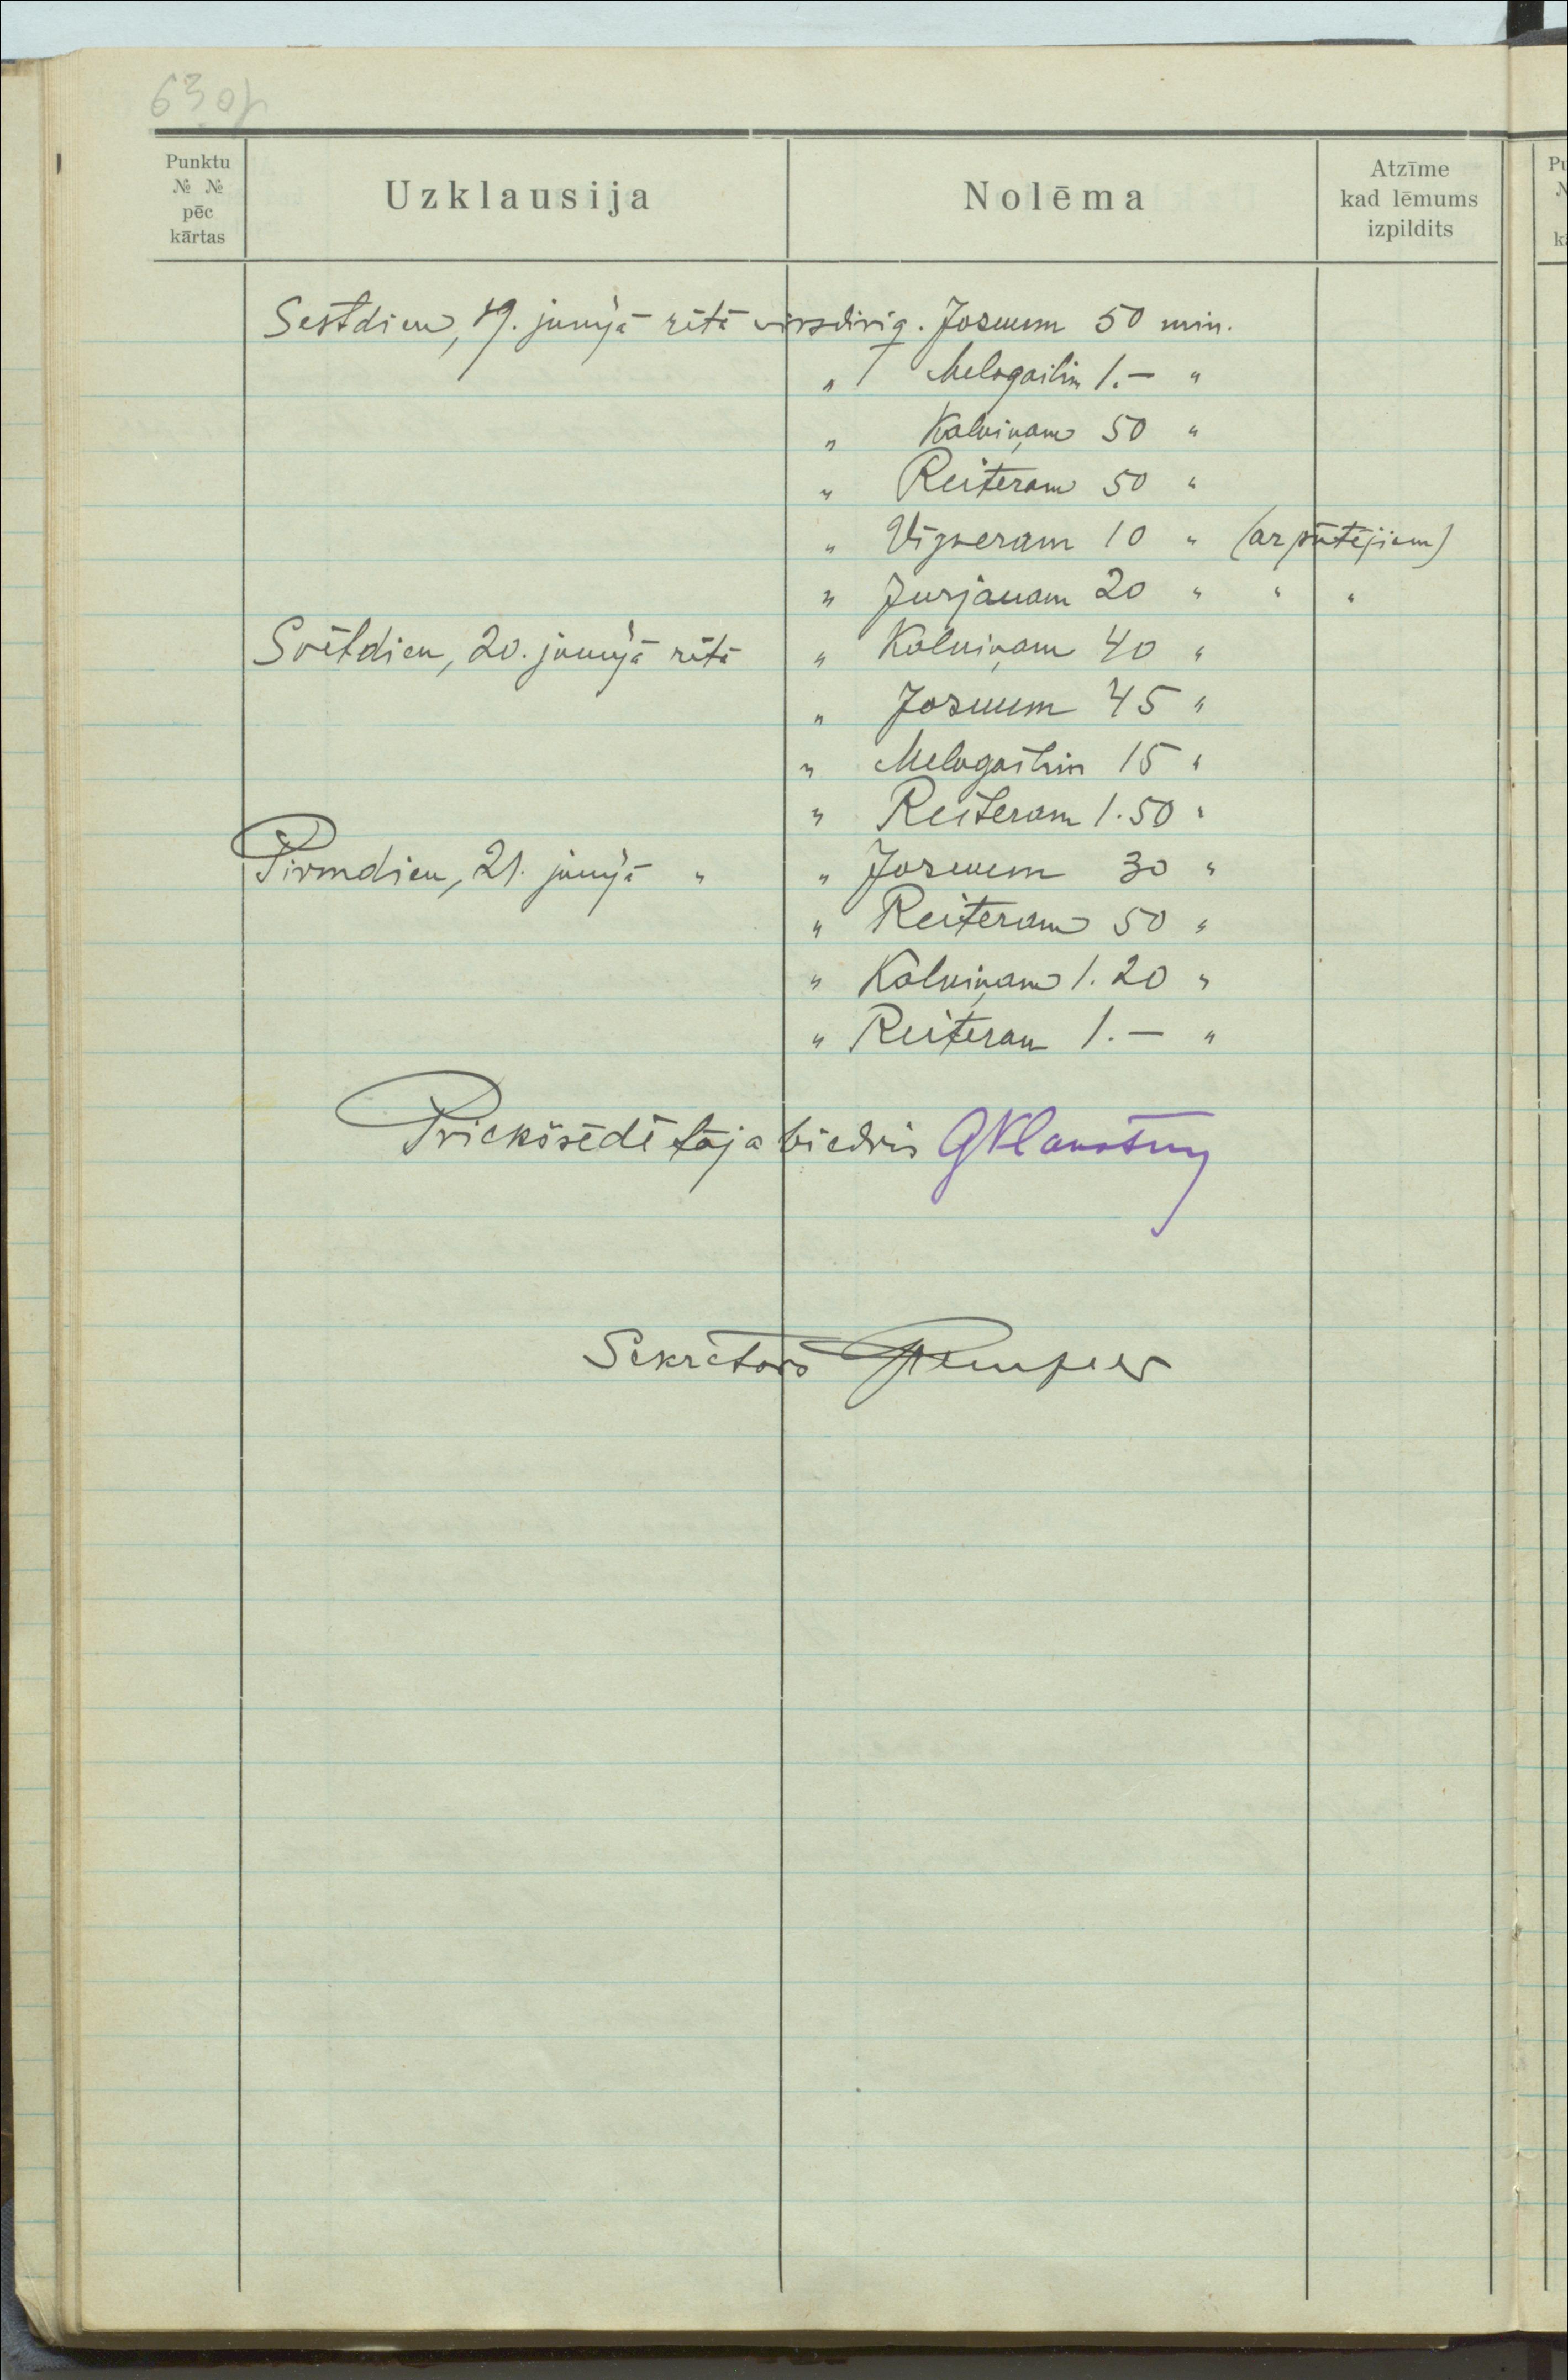 63 op
Punktu
№ №
pēc
kārtas
Uzklausija
Nolēma
Atzīme
kad lēmums
izpildits
Sestdien, 19. junijā rītā virsdirig. Jozuum 50 min.
" Melngailim 1.— "
" Kalniņam 50 "
" Reiteram 50 "
" Vigneram 10 " (ar pūtējiem)
" Jurjanam 20 " " "
Svētdien, 20. junijā rītā " Kalniņam 40 "
" Jozuum 45 "
" Melngailim 15 "
" Reiteram 1.50 "
Pirmdien, 21. junijā " " Jozuum 30 "
" Reiteram 50 "
" Kalniņam 1.20 "
" Reiteram 1.— "
Priekšsēdētāja biedris
Sekretars